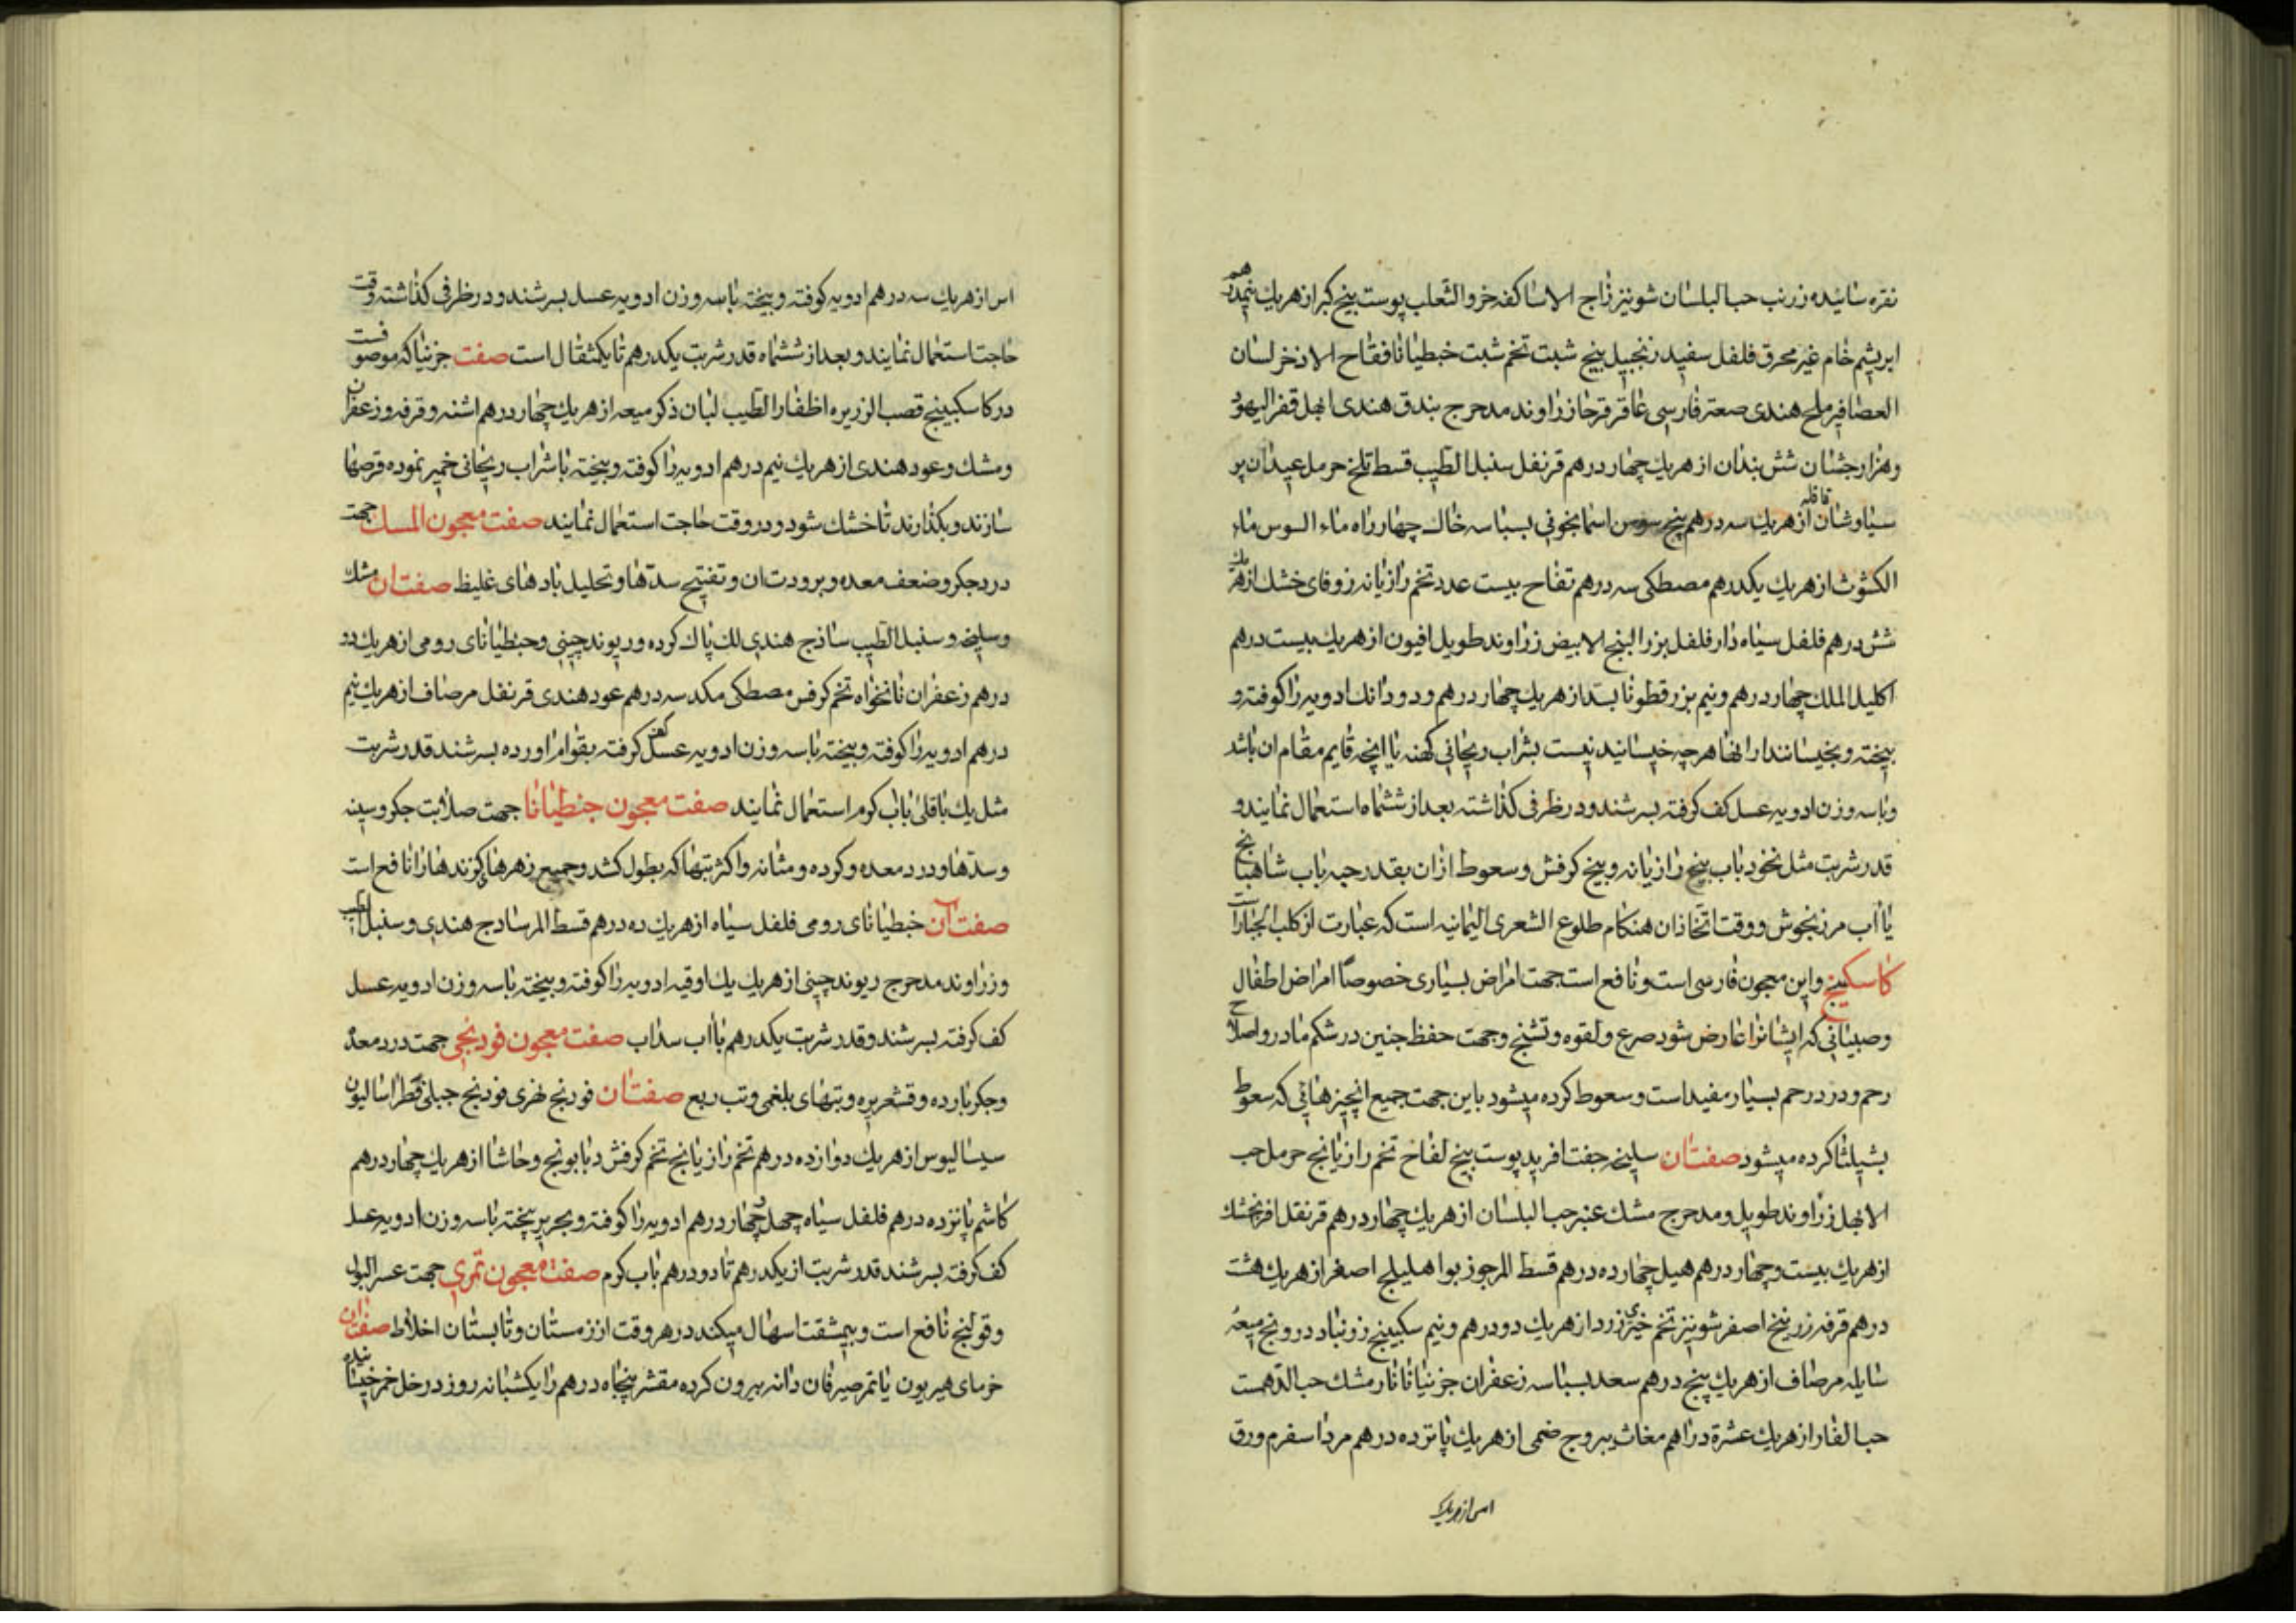 نقره سائیده زرنب حب البلسان شونیز زاج الاساکفه خرو الثعلب پوست بیخ کبر از هریك پنجدرهم
ابریشم خام غیر محرق فلفل سفید زنجبیل بیخ شبت تخم شبت خبطیانا فقاح الاذخر لسان
العصافیر ملح هندی صعتر فارسی عاقرقرحا زراوند مدحرج بندق هندی ابهل قفر الیهود
وهزارجشنان شش بندان از هریك چهار درهم قرنفل سنبل الطیب قسط تلخ حرمل عیدان بر
سیاوشان قاقله از هریك سه درهم بیخ سوسن اسمانجونی بسباسه خاك چهار راه ماء السوس ماء
الکشوث از هریك یکدرهم مصطکی سه درهم تفاح بیست عدد تخم رازیانه زوفای خشك از هریك
شش درهم فلفل سیاه دارفلفل بزر البنج الابیض زراوند طویل افیون از هریك بیست درهم
اکلیل الملك چهار درهم و نیم بزر قطونا بسد از هریك چهار درهم و دودانك ادویه را کوفته و
بیخته و بخیسانند از انها هرچه خیسانیدنیست بشراب ریحانی کهنه یا انچه قایم مقام ان باشد
و با سه وزن ادویه عسل کف کرفته بسرشند و در ظرفی کذاشته بعد از ششماه استعمال نمایند و
قدر شربت مثل نخود باب بیخ رازیانه و بیخ کرفش و سعوط ازان بقدر حبه باب شاهبانج
یا آب مرزنجوش و وقت اتخاذ ان هنکام طلوع الشعری الیمانیه است که عبارت از کلب الجبار است
کاسکبینج و این معجون فارسی است و نافع است جهت امراض بسیاری خصوصاً امراض اطفال
و صبیانی که ایشانرا عارض شود صرع و لقوه و تشنج و جهت حفظ جنین در شکم مادر و اصلاح
رحم و درد رحم بسیار مفید است و سعوط کرده میشود باین جهت جمیع انچیزهائی که سعوط
بشیلثا کرده میشود صفت ان سلیخه جفت افرید پوست بیخ لفاح تخم رازیانج حرمل حب
الابهل زراوند طویل و مدحرج مشك عنبر حب البلسان از هریك چهار درهم قرنفل افرنجشك
از هریك بیست و چهار درهم هیل چهارده درهم قسط المر جوز بوا هلیلج اصفر از هریك هشت
درهم قرفه زرنیخ اصفر شونیز تخم خیری زرد از هریك دو درهم و نیم سکبینج زرنباد درونج میعهٔ
سایله مرصاف از هریك پنج درهم سعد بسباسه زعفران جزنیانا نارمشك حب الدهمست
حب الغار از هریك عشرة دراهم مغاث یبروج ضمی از هریك پانزده درهم مرداسفرم ورق
اس از هریك
اس از هریك سه درهم ادویه کوفته و بیخته با سه وزن ادویه عسل بسرشند و در ظرفی کذاشته وقت
حاجت استعمال نمایند و بعد از ششماه قدر شربت یکدرهم تا یکمثقال است صفت جزنیا که موصوفست
در کاسکبینج قصب الزریره اظفار الطیب لبان ذکر میعه از هریك چهار درهم اشنه و قرفه و زعفران
و مشك و عود هندی از هریك نیم درهم ادویه را کوفته و بیخته با شراب ریحانی خمیر نموده قرصها
سازند و بکذارند تا خشك شود و در وقت حاجت استعمال نمایند صفت معجون المسك جهت
درد جکر و ضعف معده و برودت ان و تفتیح سدّها و تحلیل بادهای غلیظ صفت ان مشك
و سلیخه و سنبل الطیب ساذج هندی لك پاك کرده و ریوند چینی و جنطیانای رومی از هریك دو
درهم زعفران نانخواه تخم کرفس مصطکی مکد سه درهم عود هندی قرنفل مرصاف از هریك نیم
درهم ادویه را کوفته و بیخته با سه وزن ادویه عسل کف کرفته بقوام اورده بسرشند قدر شربت
مثل یك باقلی باب کرم استعمال نمایند صفت معجون جنطیانا جهت صلابت جکر و سپنه
و سدّها و درد معده و کرده و مثانه و اکثر تبها که بطول کشد و جمیع زهرها و کزندها را نافع است
صفت آن خبطیانای رومی فلفل سیاه از هریك ده درهم قسط المر سادج هندی و سنبل الطیب
و زراوند مدحرج ریوند چینی از هریك یك اوقیه ادویه را کوفته و بیخته با سه وزن ادویه عسل
کف کرفته بسرشند و قدر شربت یکدرهم با آب سداب صفت معجون فودنجی جهت درد معده
و جکر بارده و قشعریره و تبهای بلغمی و تب ربع صفت ان فودنج نهری فودنج جبلی فطراسالیون
سیسالیوس از هریك دوازده درهم تخم رازیانج تخم کرفش و بابونج و حاشا از هریك چهار درهم
کاشم پانزده درهم فلفل سیاه چهل و چهار درهم ادویه را کوفته و بحریر بیخته با سه وزن ادویه عسل
کف کرفته بسرشند قدر شربت از یکدرهم تا دو درهم باب کرم صفت معجون تمری جهت عسر البول
و قولنج نافع است و بیمشقت اسهال میکند در هر وقت از زمستان و تابستان اخلاط صفت ان
خرمای هیریون یا تمر صیرفان دانه بیرون کرده مقشر پنجاه درهم را یکشبانه روز در خل خمر خیسانیده